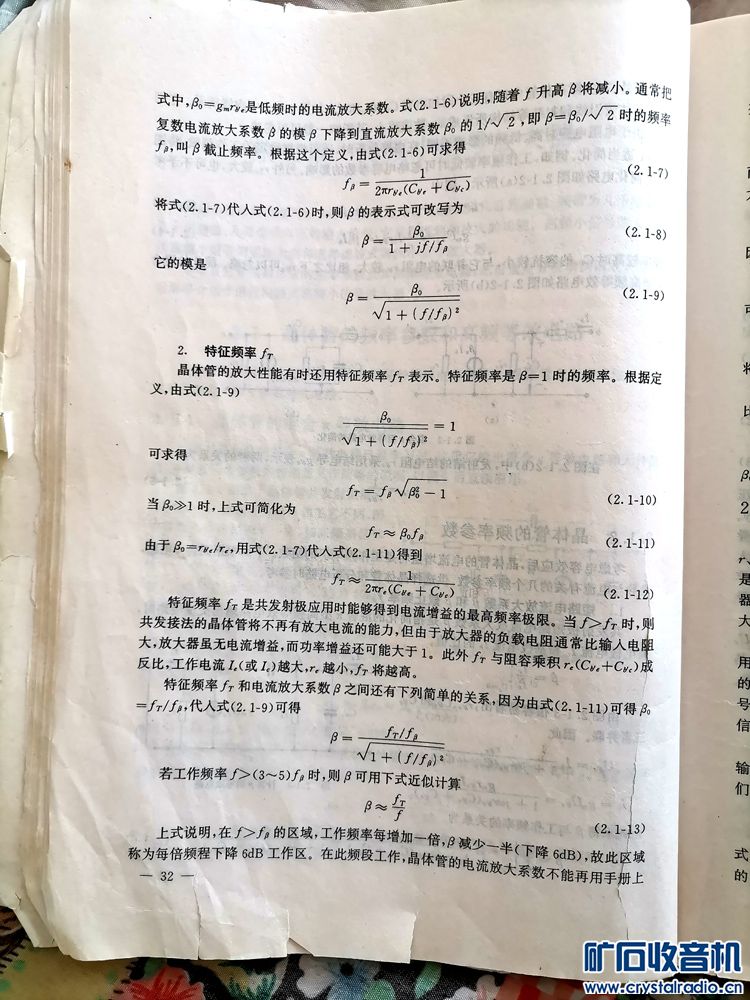 式中,β₀=gₘr_b′e是低频时的电流放大系数。式(2.1-6)说明,随着 f 升高 β 将减小。通常把
复数电流放大系数 β 的模 β 下降到直流放大系数 β₀ 的 1/√2,即 β=β₀/√2 时的频率
f_β,叫 β 截止频率。根据这个定义,由式(2.1-6)可求得
f_β = 1/(2πr_b′e(C_b′e + C_b′c)) (2.1-7)
将式(2.1-7)代人式(2.1-6)时,则 β 的表示式可改写为
β = β₀/(1 + jf/f_β) (2.1-8)
它的模是
β = β₀/√(1 + (f/f_β)²) (2.1-9)
2. 特征频率 f_T
晶体管的放大性能有时还用特征频率 f_T 表示。特征频率是 β=1 时的频率。根据定
义,由式(2.1-9)
β₀/√(1 + (f/f_β)²) = 1
可求得
f_T = f_β√(β₀² − 1) (2.1-10)
当 β₀≫1 时,上式可简化为
f_T ≈ β₀f_β (2.1-11)
由于 β₀=r_b′e/r_e,用式(2.1-7)代人式(2.1-11)得到
f_T ≈ 1/(2πr_e(C_b′e + C_b′c)) (2.1-12)
特征频率 f_T 是共发射极应用时能够得到电流增益的最高频率极限。当 f>f_T 时,则
共发接法的晶体管将不再有放大电流的能力,但由于放大器的负载电阻通常比输人电阻
大,放大器虽无电流增益,而功率增益还可能大于 1。此外 f_T 与阻容乘积 r_e(C_b′e+C_b′c)成
反比,工作电流 I_e(或 I_c)越大,r_e 越小,f_T 将越高。
特征频率 f_T 和电流放大系数 β 之间还有下列简单的关系,因为由式(2.1-11)可得 β₀
=f_T/f_β,代人式(2.1-9)可得
β = (f_T/f_β)/√(1 + (f/f_β)²)
若工作频率 f>(3~5)f_β 时,则 β 可用下式近似计算
β ≈ f_T/f (2.1-13)
上式说明,在 f>f_β 的区域,工作频率每增加一倍,β 减少一半(下降 6dB),故此区域
称为每倍频程下降 6dB 工作区。在此频段工作,晶体管的电流放大系数不能再用手册上
— 32 —
矿石收音机
www.crystalradio.cn